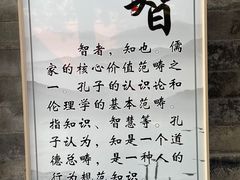 智
智者，知也。儒
家的核心价值范畴之
一。孔子的认识论和
伦理学的基本范畴。
指知识、智慧等。孔
子认为，知是一个道
德总畴，是一种人的
行为规范知识